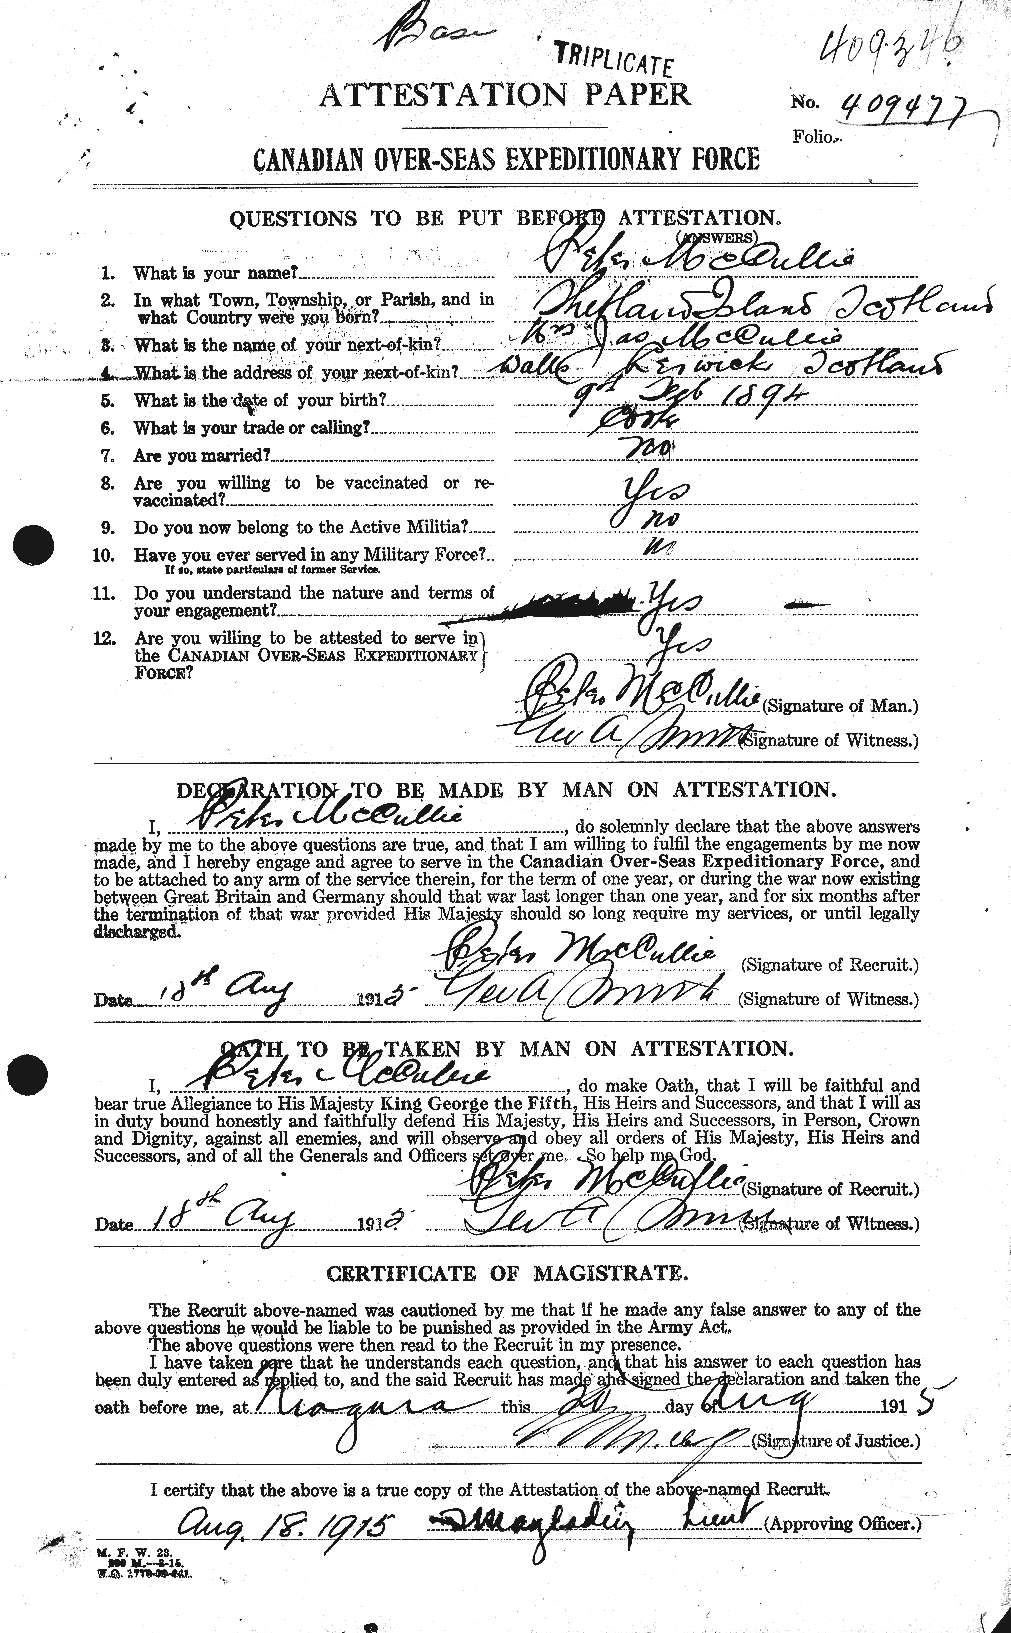 Base
TRIPLICATE
409346
ATTESTATION PAPER
No. 409477
Folio.
CANADIAN OVER-SEAS EXPEDITIONARY FORCE
QUESTIONS TO BE PUT BEFORE ATTESTATION.
(ANSWERS)
1. What is your name? Peter McCullie
2. In what Town, Township, or Parish, and in
what Country were you born? Shetland Island Scotland
3. What is the name of your next-of-kin? Mrs Jas McCullie
4. What is the address of your next-of-kin? Walls Lerwick Scotland
5. What is the date of your birth? 9th Feb 1894
6. What is your trade or calling? Cook
7. Are you married? no
8. Are you willing to be vaccinated or re-
vaccinated? Yes
9. Do you now belong to the Active Militia? no
10. Have you ever served in any Military Force? no
If so, state particulars of former Service.
11. Do you understand the nature and terms of
your engagement? Yes
12. Are you willing to be attested to serve in
the CANADIAN OVER-SEAS EXPEDITIONARY Yes
FORCE?
Peter McCullie (Signature of Man.)
Geo A Smith (Signature of Witness.)
DECLARATION TO BE MADE BY MAN ON ATTESTATION.
I, Peter McCullie, do solemnly declare that the above answers
made by me to the above questions are true, and that I am willing to fulfil the engagements by me now
made, and I hereby engage and agree to serve in the Canadian Over-Seas Expeditionary Force, and
to be attached to any arm of the service therein, for the term of one year, or during the war now existing
between Great Britain and Germany should that war last longer than one year, and for six months after
the termination of that war provided His Majesty should so long require my services, or until legally
discharged.
Peter McCullie (Signature of Recruit.)
Date 18th Aug 1915 Geo A Smith (Signature of Witness.)
OATH TO BE TAKEN BY MAN ON ATTESTATION.
I, Peter McCullie, do make Oath, that I will be faithful and
bear true Allegiance to His Majesty King George the Fifth, His Heirs and Successors, and that I will as
in duty bound honestly and faithfully defend His Majesty, His Heirs and Successors, in Person, Crown
and Dignity, against all enemies, and will observe and obey all orders of His Majesty, His Heirs and
Successors, and of all the Generals and Officers set over me. So help me God.
Peter McCullie (Signature of Recruit.)
Date 18th Aug 1915 Geo A Smith (Signature of Witness.)
CERTIFICATE OF MAGISTRATE.
The Recruit above-named was cautioned by me that if he made any false answer to any of the
above questions he would be liable to be punished as provided in the Army Act.
The above questions were then read to the Recruit in my presence.
I have taken care that he understands each question, and that his answer to each question has
been duly entered as replied to, and the said Recruit has made and signed the declaration and taken the
oath before me, at Niagara this 20 day of Aug 1915
(Signature of Justice.)
I certify that the above is a true copy of the Attestation of the above-named Recruit.
Aug. 18. 1915 Lieut (Approving Officer.)
M. F. W. 23.
200 M.—2-15.